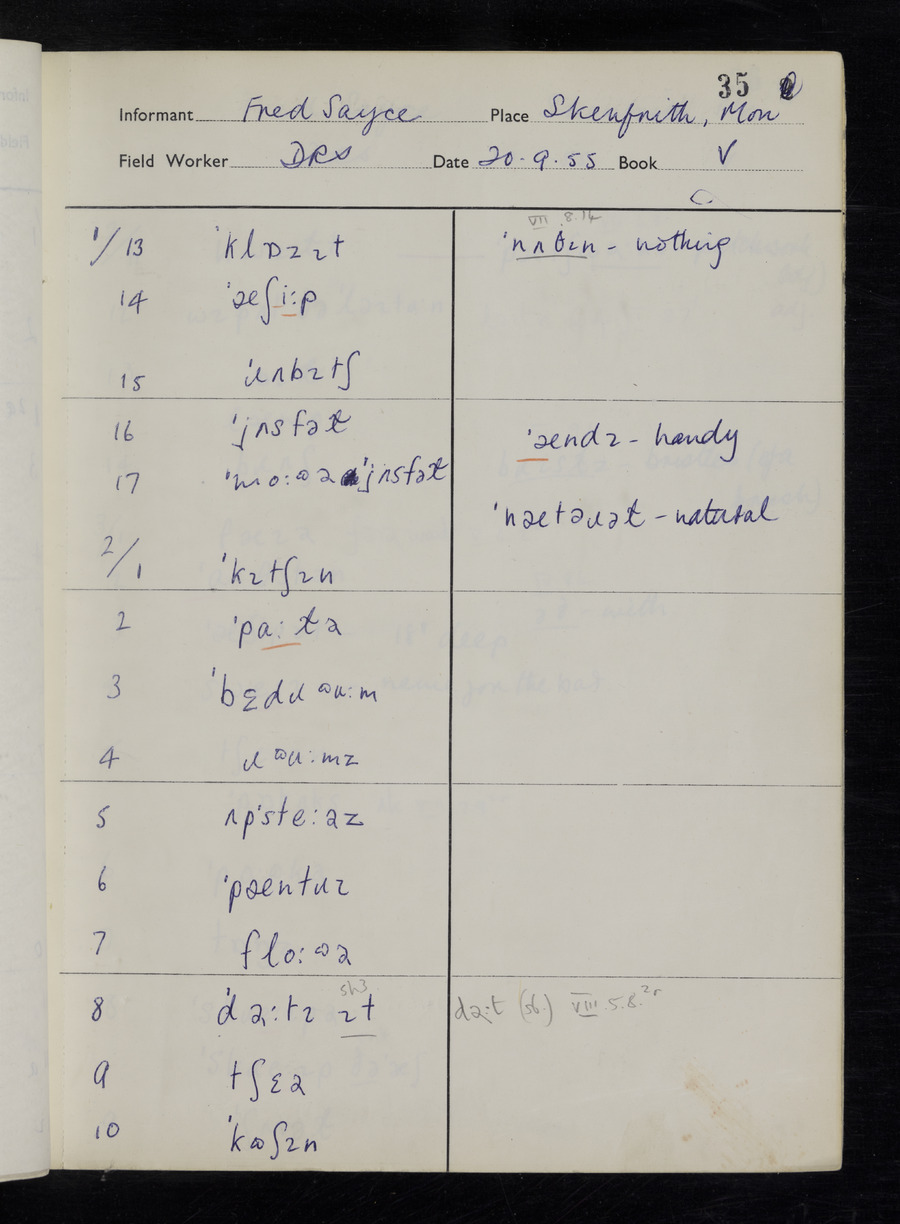 35
Informant Fred Sayce Place Skenfrith, Mon
Field Worker DRS Date 20-9-55 Book V
VII 8.14
1/13 ˈklɒzɪt ˈnʌθɪn - nothing
14 ˈæʃiːp
15 ˈɹʌbɪtʃ
16 ˈjʌsfəɫ ˈændɪ - handy
17 ˈmoːʊə ˈjʌsfəɫ
ˈnætəɹəɫ - natural
2/1 ˈkɪtʃɪn
2 ˈpaːɫə
3 ˈbɛdɹʊuːm
4 ɹʊuːmz
5 ʌpˈsteːəz
6 ˈpæntɹɪ
7 floːʊə
8 ˈdəːtɪ ɪt dəːt (sb.) VIII.5.8.
9 tʃɛə
10 ˈkʊʃɪn